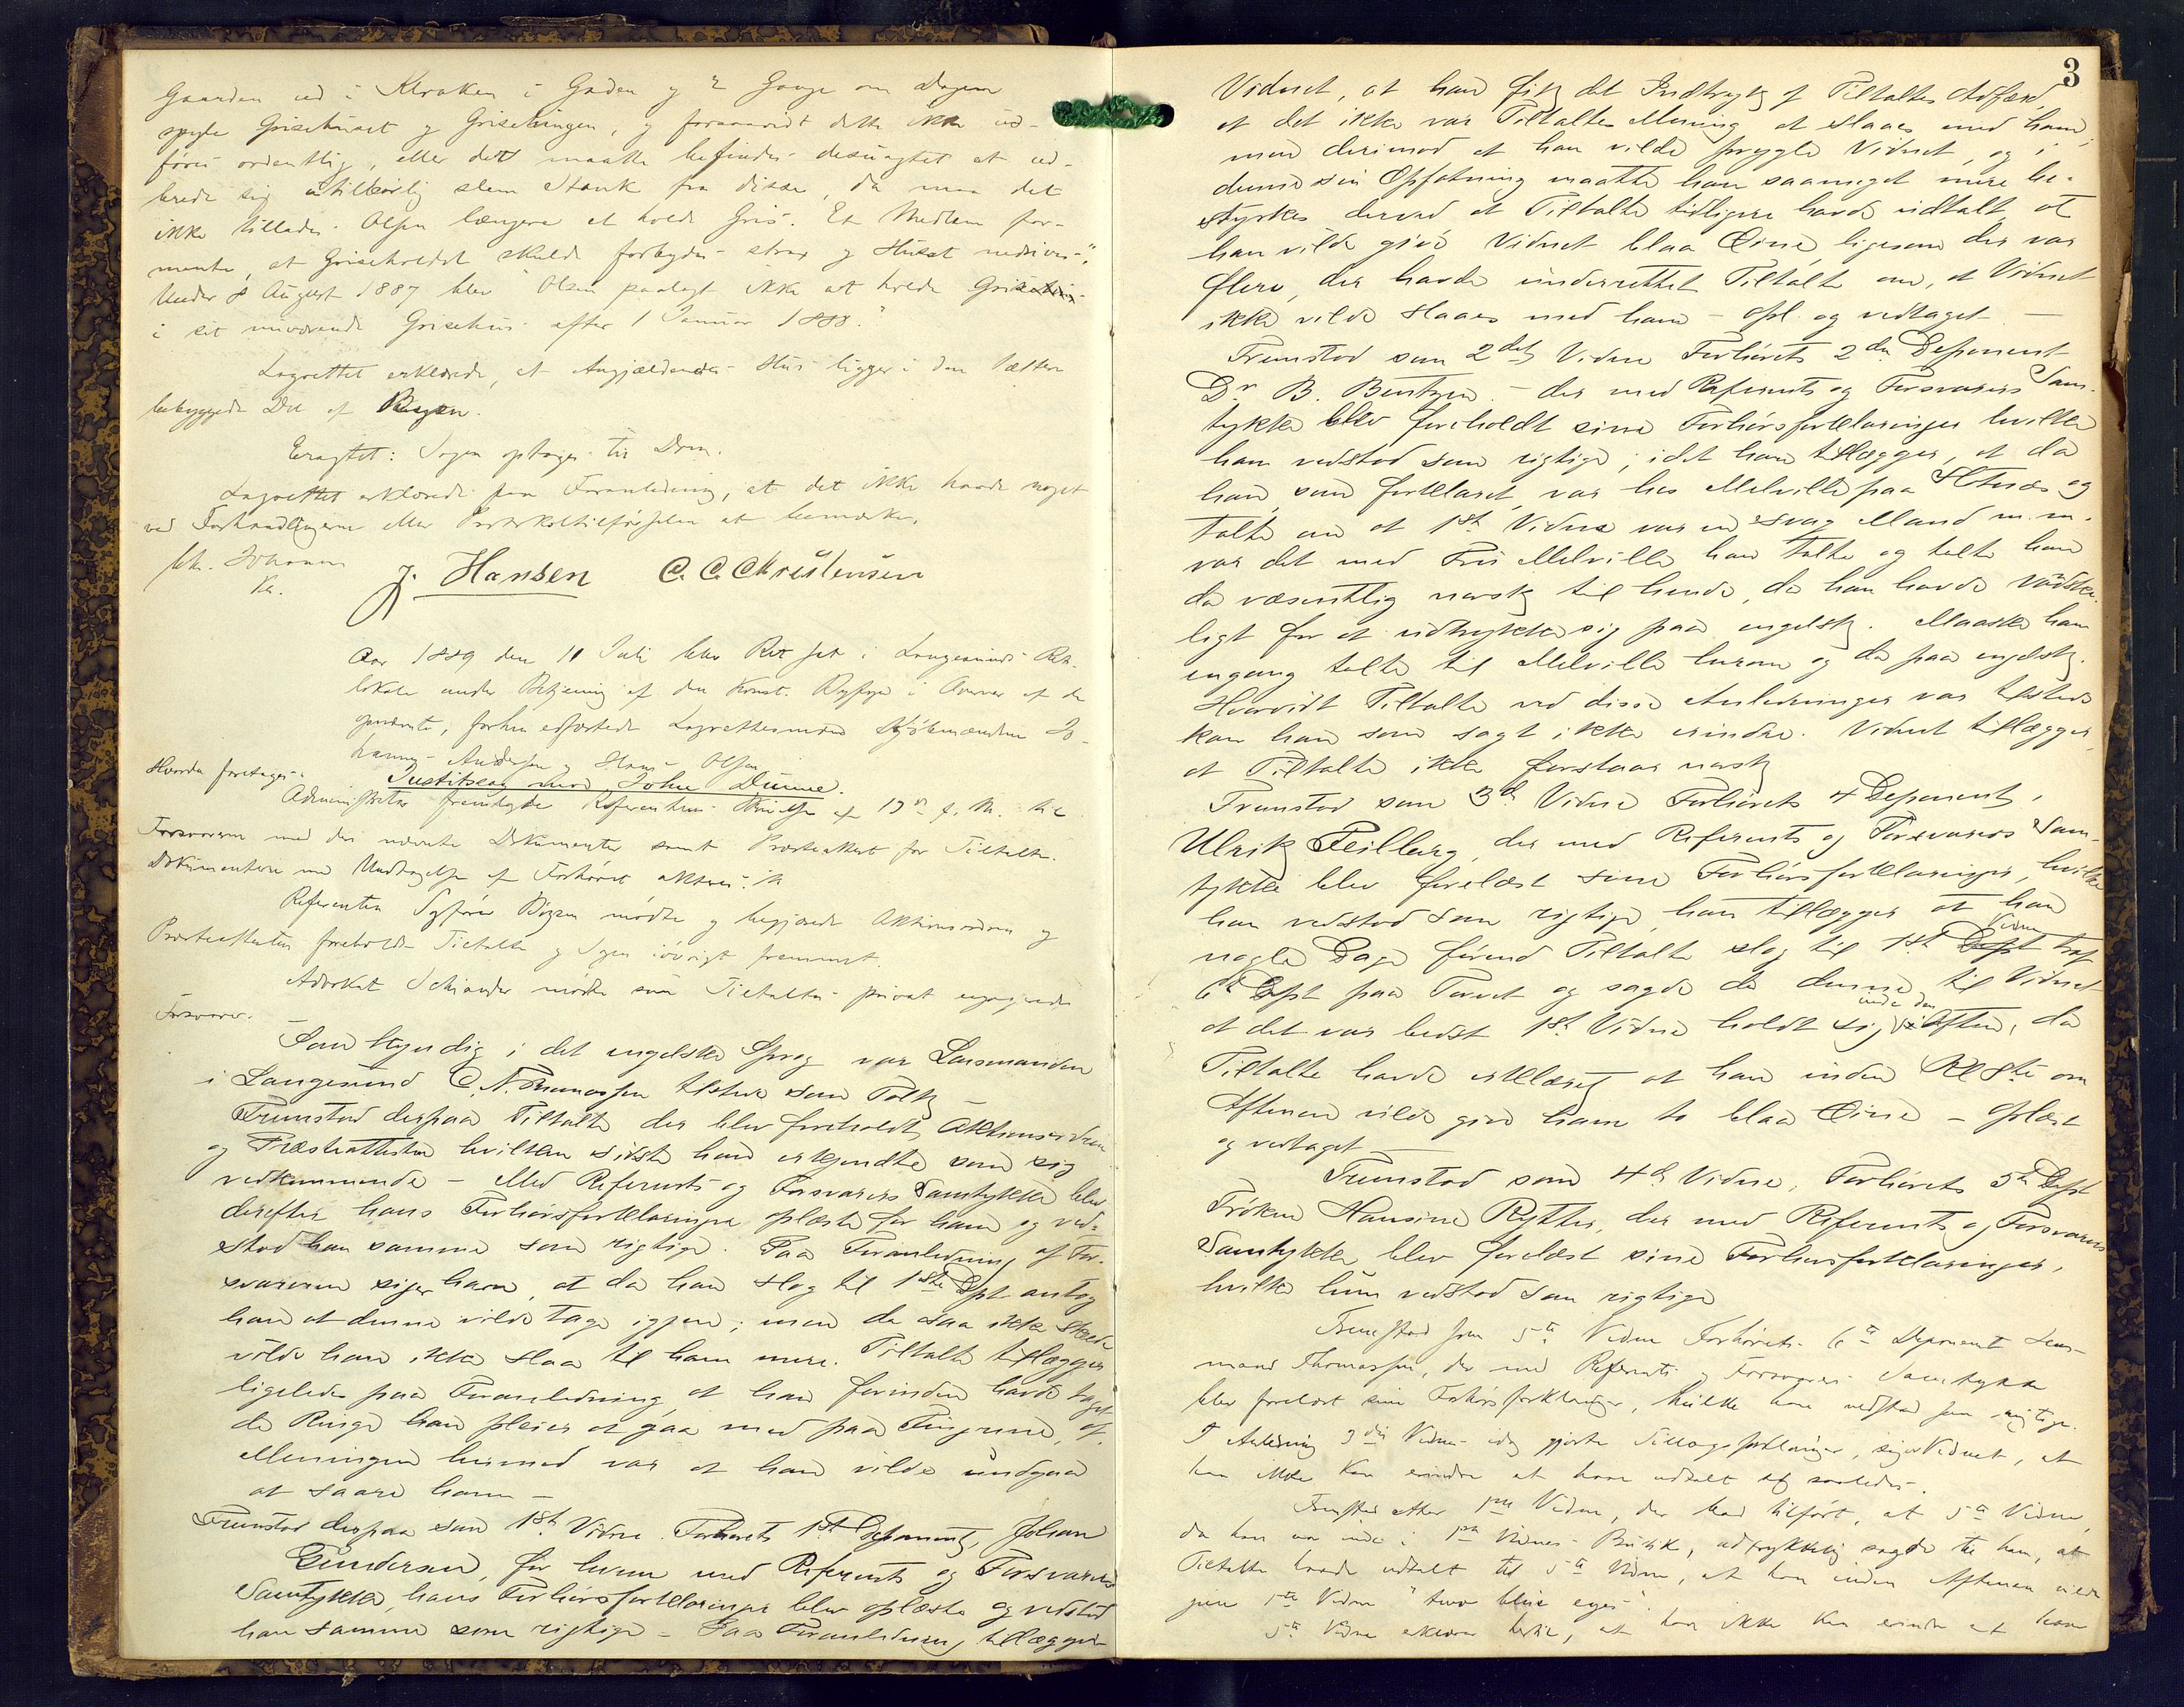 Gaarden ud i Kloaken i Gaden og 2 Gange om Dagen
spyle Grisehuset og Grisebingen, og forsaavidt dette ikke ud-
føres ordentlig, eller dett maatte befindes desuagtet at ud-
brede sig utilbørlig slem Stank fra disse, da maa det
ikke tillades Olsen længere at holde Gris. Et Medlem for-
mente, at Griseholdet skulde forbydes strax og Huset nedrives".
Under 8 August 1887 blev Olsen paalagt ikke at holde Gris
i sit nuværende Grisehus efter 1 Januar 1888."
Lagrettet erklærede, at Angjældendes Hus ligger i den tættere
bebyggede Del af Byen.
Eragtet: Sagen optages til Dom.
Lagrettet erklærede paa Foranledning, at det ikke havde noget
ved Forhandlingerne eller Protokoltilførselen at bemærke.
J. Hansen C. C. Christensen
Aar 1889 den 11 Juli blev Ret sat i Langesunds Ret-
lokale under Betjening af den konst. Byfoged i Overvær af de
opnævnte, forhen edfæstede Lagrettesmænd Kjøbmændene Jo-
hannes Andersen og Hans Olsen
Hvorda foretages:
Justitssag mod John Dunne.
Administrator fremlagde Referentens Skrivelse af 13de f. M. til
Forsvareren med der nævnte Dokumenter samt Præsteattest for Tiltalte.
Dokumenterne med Undtagelse af Forhøret akteres.
Referenten Sagfører Bögen mødte og begjærede Aktionsordren og
Præsteattesten foreholdt Tiltalte og Sagen iøvrigt fremmet.
Advokat Schiander mødte som Tiltaltes privat engagerede
Forsvarer.
Som kyndig i det engelske Sprog var Lensmanden
i Langesund C. N. Thomassen tilstede som Tolk
Fremstod derpaa Tiltalte der blev foreholdt Aktionsordren
og Præsteattesten hvilken sidste han erkjendte som sig
vedkommende – Med Referents og Forsvarers Samtykke blev
derefter hans Forhørsforklaringer oplæste for ham og ved-
stod han samme som rigtige. Paa Foranledning af For-
svareren siger han, at da han slog til 1ste Dpt antog
han at denne vilde tage igjen; men da saa ikke skede
vilde han ikke slaa til ham mere. Tiltalte tillægger
ligeledes paa Foranledning, at han forinden havde taget
de Ringe han pleier at gaa med paa Fingrene, af,
Meningen hermed var at han vilde undgaa
at saare ham –
Fremstod derpaa som 1ste Vidne Forhørets 1ste Deponent, Johan
Gundersen, for hvem med Referents og Forsvarers
Samtykke, hans Forhørsforklaringer blev oplæste og vedstod
han samme som rigtige – Paa Foranledning tillægger
3
Vidnet, at han fik det Indtryk af Tiltaltes Adfærd,
at det ikke var Tiltaltes Mening at slaaes med ham,
men derimod at han vilde prygle Vidnet, og i
denne sin Opfatning maatte han saameget mere be-
styrkes derved at Tiltalte tidligere havde udtalt, at
han vilde give Vidnet blaa Øine ligesom der var
flere, der havde underrettet Tiltalte om, at Vidnet
ikke vilde slaaes med ham – Opl. og vedtaget. –
Fremstod som 2det Vidne Forhørets 2den Deponent
Dr B. Bentzen. – der med Referents og Forsvarers Sam-
tykke blev foreholdt sine Forhørsforklaringer hvilke
han vedstod som rigtige; idet han tillægger, at da
han, som forklaret, var hos Melville paa og
talte om at 1ste Vidne var en svag Mand m.m.
var det med Fru Melville han talte og talte han
da væsentlig norsk til hende, da han havde vanske-
ligt for at udtrykke sig paa engelsk. Maaske han
engang talte til Melville herom og da paa engelsk.
Hvorvidt Tiltalte ved disse Anledninger var tilstede
kan han som sagt ikke erindre. Vidnet tillægger
at Tiltalte ikke forstaar norsk
Fremstod som 3de Vidne Forhørets 4 Deponent,
Ulrik Feilberg, der med Referents og Forsvarers Sam-
tykke blev forelæst sine Forhørsforklaringer, hvilke
han vedstod som rigtige, han tillægger at han
nogle Dage førend Tiltalte slog til 1ste Vidne traf
6te Dpt paa Torvet og sagde da denne til Vidnet
at det var bedst 1ste Vidne holdt sig inde den Aften, da
Tiltalte havde erklæret at han inden Kl 8te om
Aftenen vilde give ham to blaa Øine – Oplæst
og vedtaget –
Fremstod som 4de Vidne, Forhørets 5te Dept
Frøken Hansine Rytter, der med Referents og Forsvarers
Samtykke blev forelæst sine Forhørsforklaringer,
hvilke hun vedstod som rigtige
Fremstod som 5te Vidne Forhørets 6te Deponent Lens-
mand Thomassen, der med Referents og Forsvarers Samtykke
blev forelæst sine Forhørsforklaringer, hvilke han vedstod som rigtige.
I Anledning 3die Vidnes idag gjorte Tillægsforklaringer, siger Vidnet, at
han ikke kan erindre at have udtalt sig saaledes.
Fremstod atter 1ste Vidne, der lod tilført, at 5te Vidne,
da han var inde i 1ste Vidnes Butik, udtrykkelig sagde til ham, at
Tiltalte havde udtalt til 5te Vidne, at han inden Aftenen vilde
give 1ste Vidne "two blue eyes".
5te Vidne erklærer hertil, at han ikke kan erindre at have